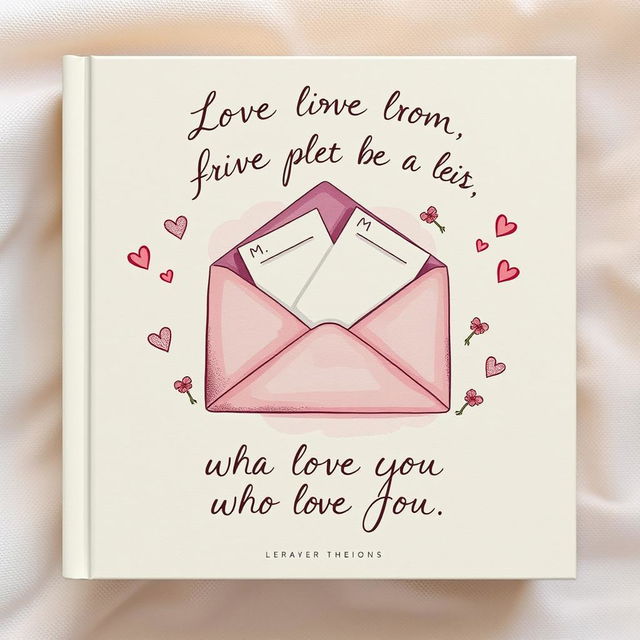 Love lirve lrom,
frive plet be a leis,
M.
M
wha love you
who love you.
LERAYER THEIONS